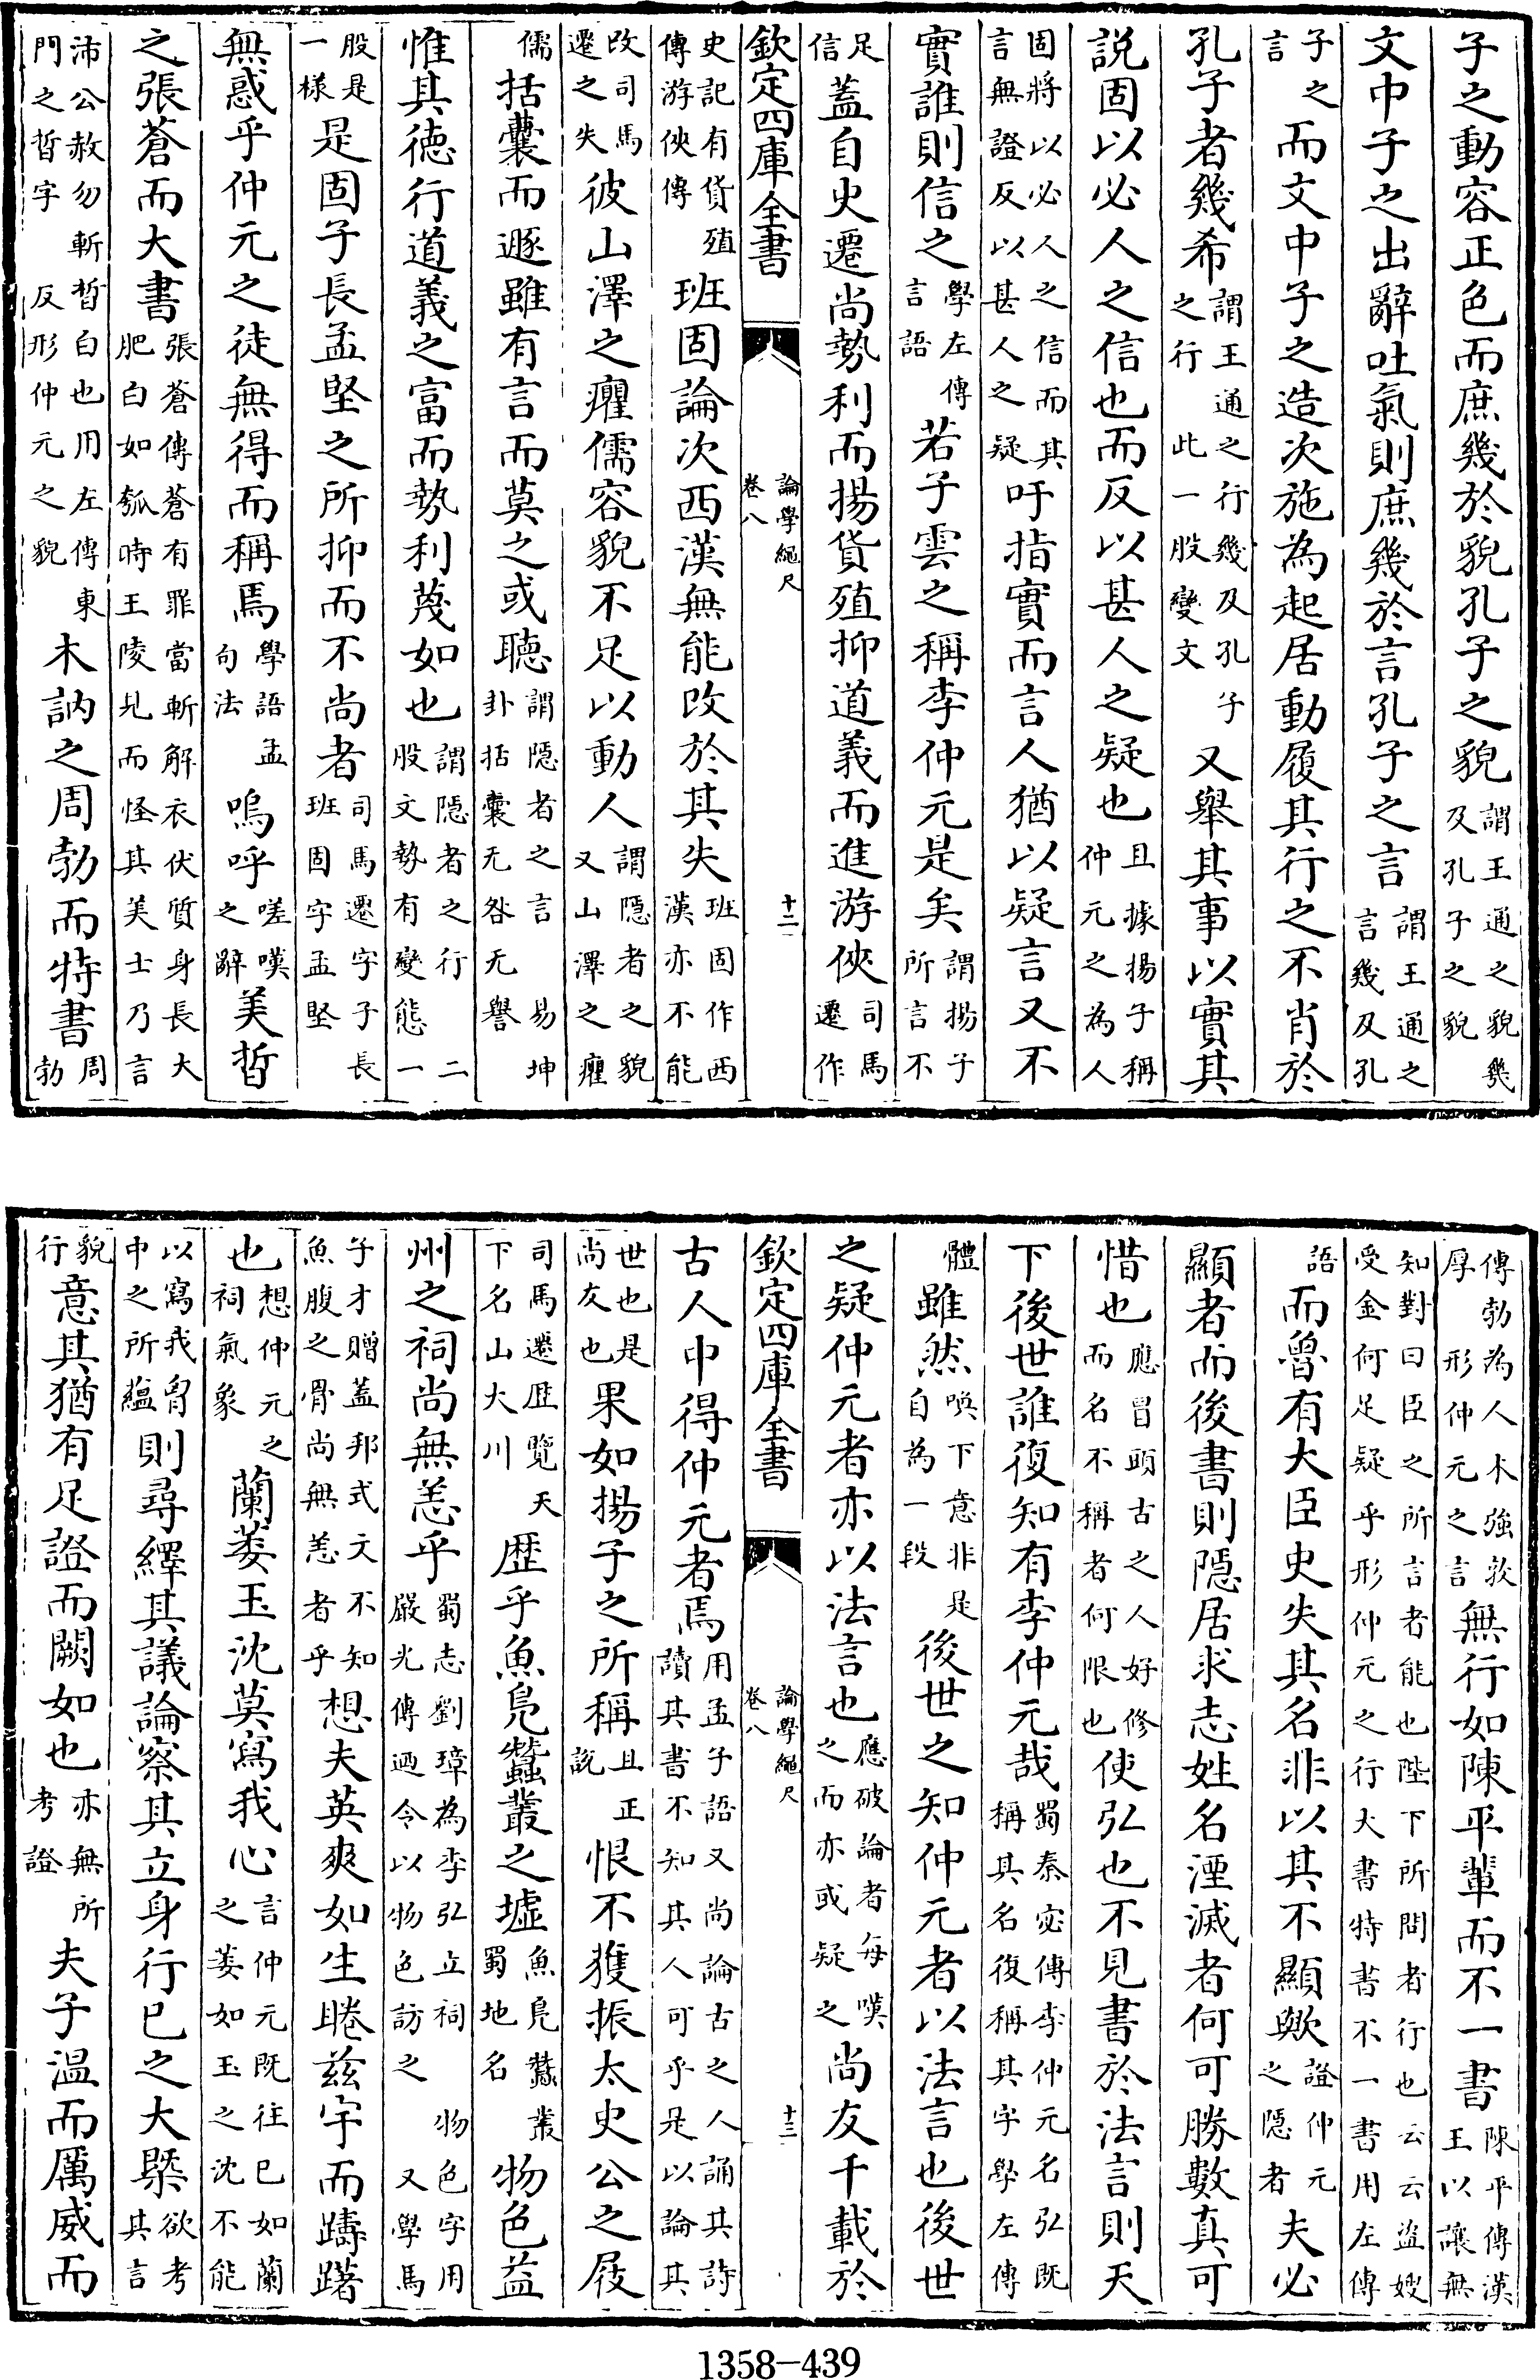 子之動容正色而庶幾於貌孔子之貌謂王通之貌幾及孔子之貌
文中子之出辭吐氣則庶幾於言孔子之言謂王通之言幾及孔
子之言而文中子之造次施為起居動履其行之不肖於
孔子者幾希謂王通之行幾及孔子之行此一股變文又舉其事以實其
說固以必人之信也而反以甚人之疑也且據揚子稱仲元之為人
固將以必人之信而其言無證反以甚人之疑吁指實而言人猶以疑言又不
實誰則信之學左傳言語若子雲之稱李仲元是矣謂揚子所言不
足信蓋自史遷尚勢利而揚貨殖抑道義而進游俠司馬遷作
史記有貨殖傳游俠傳班固論次西漢無能改於其失班固作西漢亦不能
改司馬遷之失彼山澤之癯儒容貌不足以動人謂隱者之貌又山澤之癯
儒括囊而遯雖有言而莫之或聽謂隱者之言易坤卦括囊无咎无譽
惟其徳行道義之富而勢利蔑如也謂隱者之行二股文勢有變態一
股是一様是固子長孟堅之所抑而不尚者司馬遷字子長班固字孟堅
無惑乎仲元之徒無得而稱焉學語孟句法嗚呼嗟嘆之辭美晳
之張蒼而大書張蒼傳蒼有罪當斬解衣伏質身長大肥白如瓠時王陵見而怪其美士乃言
沛公赦勿斬晳白也用左傳東門之晳字反形仲元之貌木訥之周勃而特書周勃
欽定四庫全書
論學繩尺
卷八
十二
傳勃為人木強敦厚形仲元之言無行如陳平輩而不一書陳平傳漢王以讓無
知對曰臣之所言者能也陛下所問者行也云云盗嫂受金何足疑乎形仲元之行大書特書不一書用左傳
語而魯有大臣史失其名非以其不顯歟證仲元之隱者夫必
顯者而後書則隱居求志姓名湮滅者何可勝數真可
惜也應冒頭古之人好修而名不稱者何限也使弘也不見書於法言則天
下後世誰復知有李仲元哉蜀秦宓傳李仲元名弘既稱其名復稱其字學左傳
體雖然喚下意非是自為一段後世之知仲元者以法言也後世
之疑仲元者亦以法言也應破論者每嘆之而亦或疑之尚友千載於
古人中得仲元者焉用孟子語又尚論古之人誦其詩讀其書不知其人可乎是以論其
世也是尚友也果如揚子之所稱且正說恨不獲振太史公之屐
司馬遷歴覽天下名山大川歴乎魚鳬蠶叢之墟魚鳬蠶叢蜀地名物色益
州之祠尚無恙乎蜀志劉璋為李弘立祠物色字用嚴光傳廼令以物色訪之又學馬
子才贈蓋邦式文不知魚腹之骨尚無恙者乎想夫英爽如生睠茲宇而躊躇
也想仲元之祠氣象蘭萎玉沈莫寫我心言仲元既往已如蘭之萎如玉之沈不能
以寫我胷中之所蘊則尋繹其議論察其立身行已之大槩欲考其言
貌行意其猶有足證而闕如也亦無所考證夫子溫而厲威而
欽定四庫全書
論學繩尺
卷八
十三
1358-439